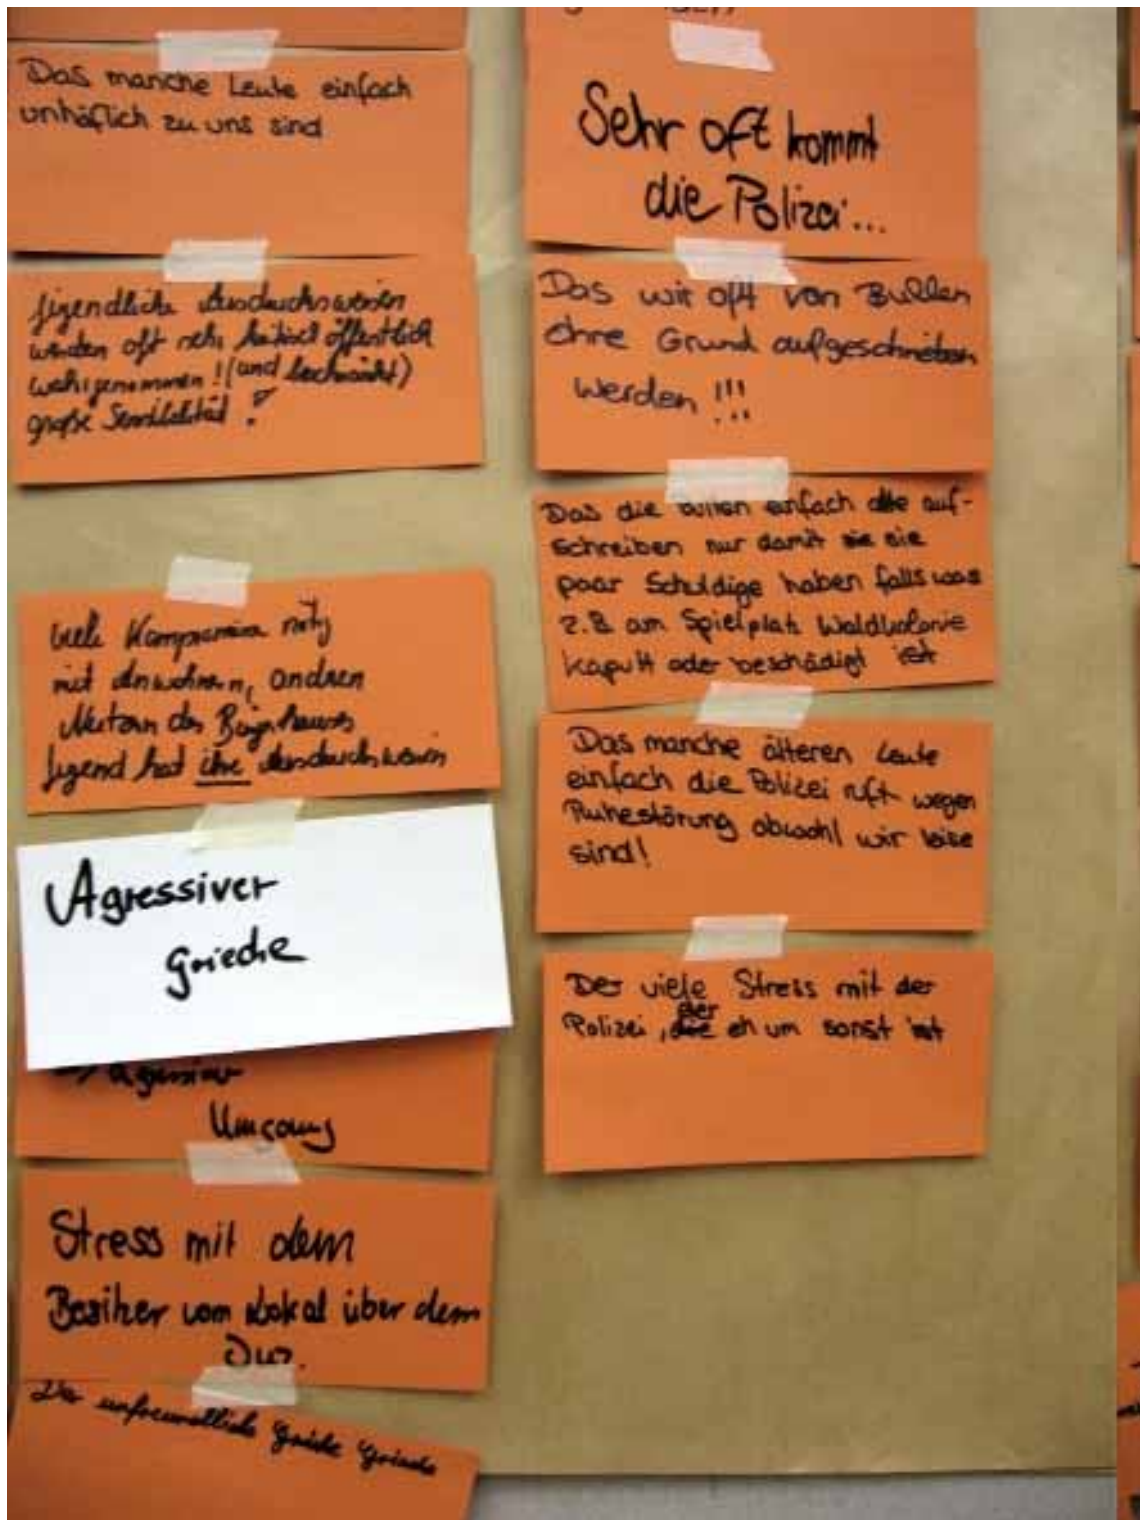 Das manche Leute einfach
unhöflich zu uns sind
Jugendliche Ausdrucksweisen
werden oft sehr kritisch öffentlich
wahrgenommen! (und
große Sensibilität !
viele Kompromisse nötig
mit Anwohnern, anderen
Nutzern des Bürgerhauses
Jugend hat ihre Ausdrucksweisen
Agressiver
Grieche
Umgang
Stress mit dem
Besitzer vom Lokal über dem
Juz.
Der unfreundliche Grieche
Sehr oft kommt
die Polizei...
Das wir oft von Bullen
ohne Grund aufgeschrieben
werden !!!
Das die Bullen einfach auf-
schreiben nur damit sie
paar Schuldige haben falls was
z.B am Spielplatz Waldkolonie
kaputt oder beschädigt ist
Das manche älteren Leute
einfach die Polizei ruft wegen
Ruhestörung obwohl wir leise
sind!
Der viele Stress mit der
Polizei, der eh um sonst ist